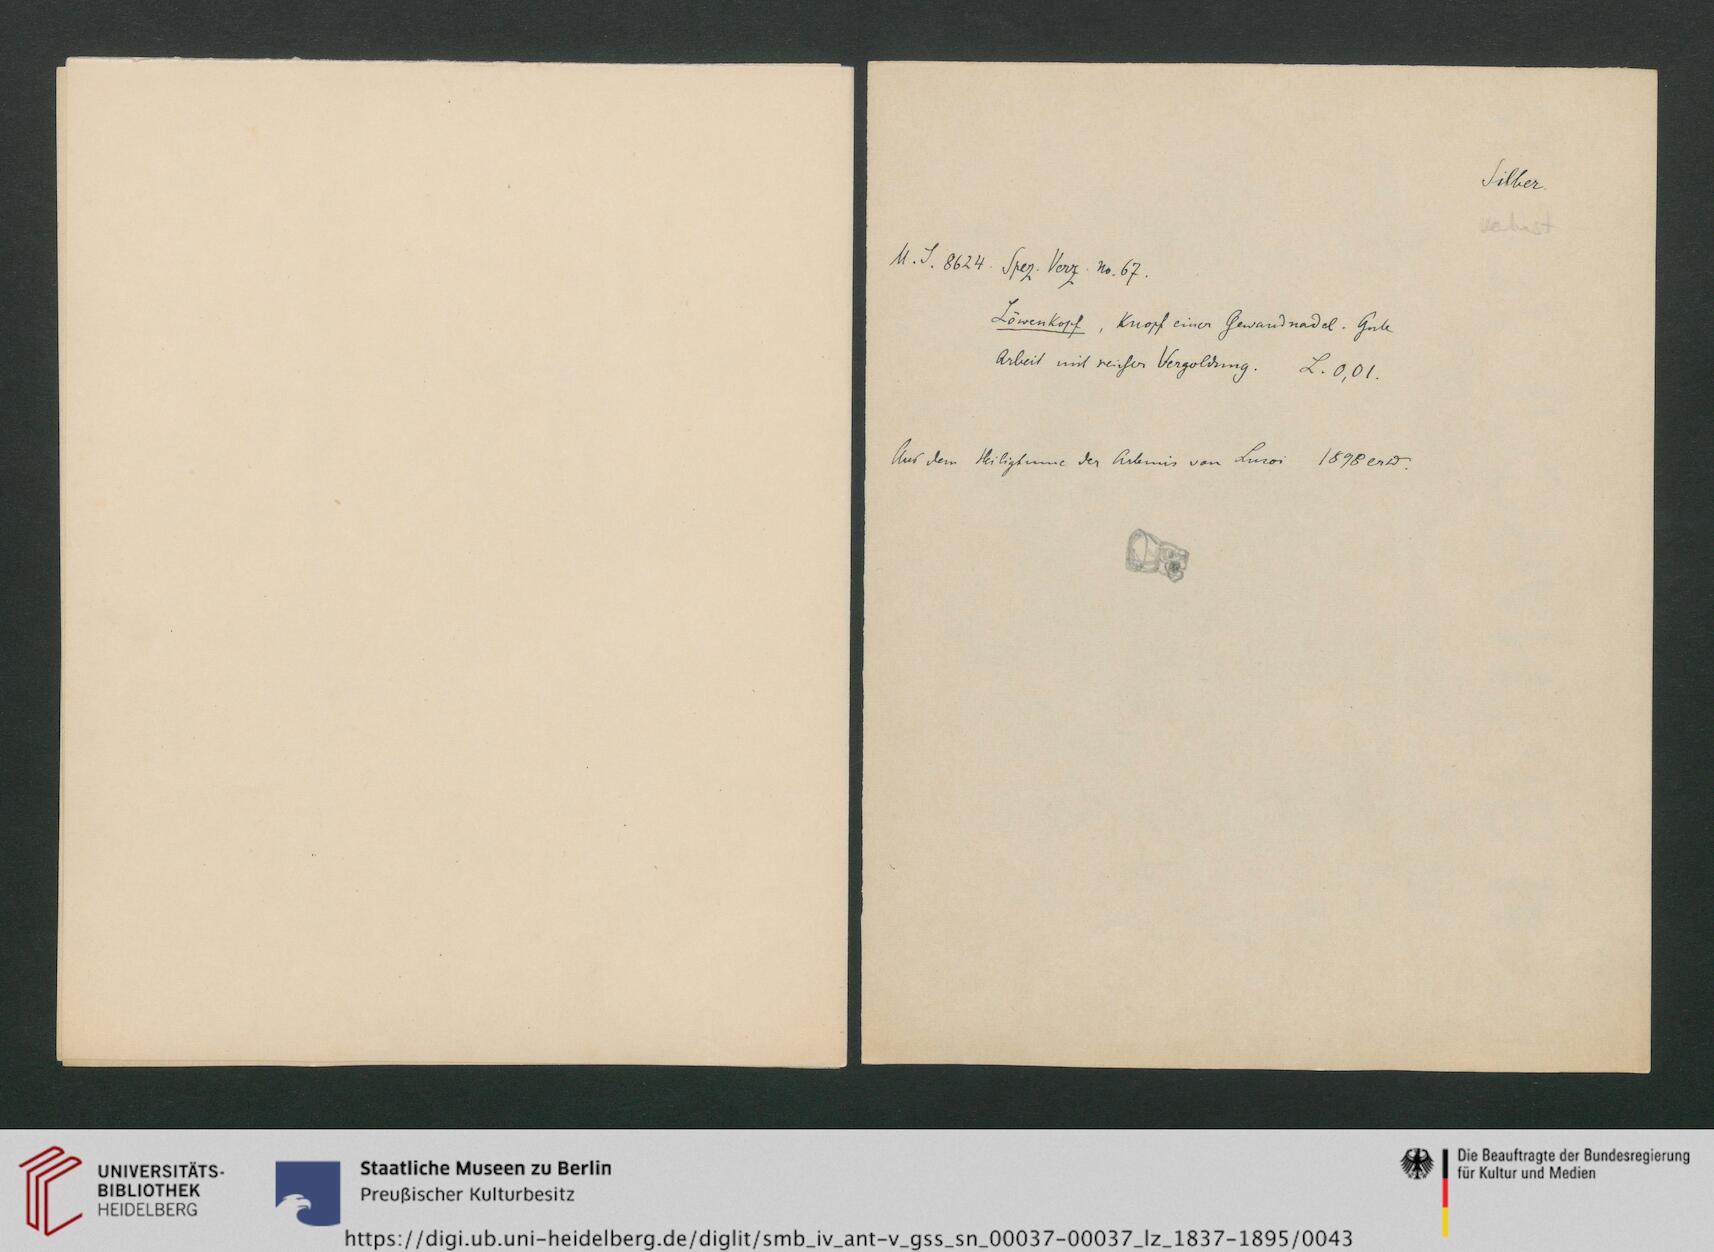 Silber.
M. I. 8624. Spez. Verz. no. 67.
Löwenkopf, Knopf einer Gewandnadel. Gute
Arbeit mit reicher Vergoldung. L. 0,01.
Aus dem Heiligtume der Artemis von Lusoi 1898 erw.
UNIVERSITÄTS-
BIBLIOTHEK
HEIDELBERG
Staatliche Museen zu Berlin
Preußischer Kulturbesitz
Die Beauftragte der Bundesregierung
für Kultur und Medien
https://digi.ub.uni-heidelberg.de/diglit/smb_iv_ant-v_gss_sn_00037-00037_lz_1837-1895/0043